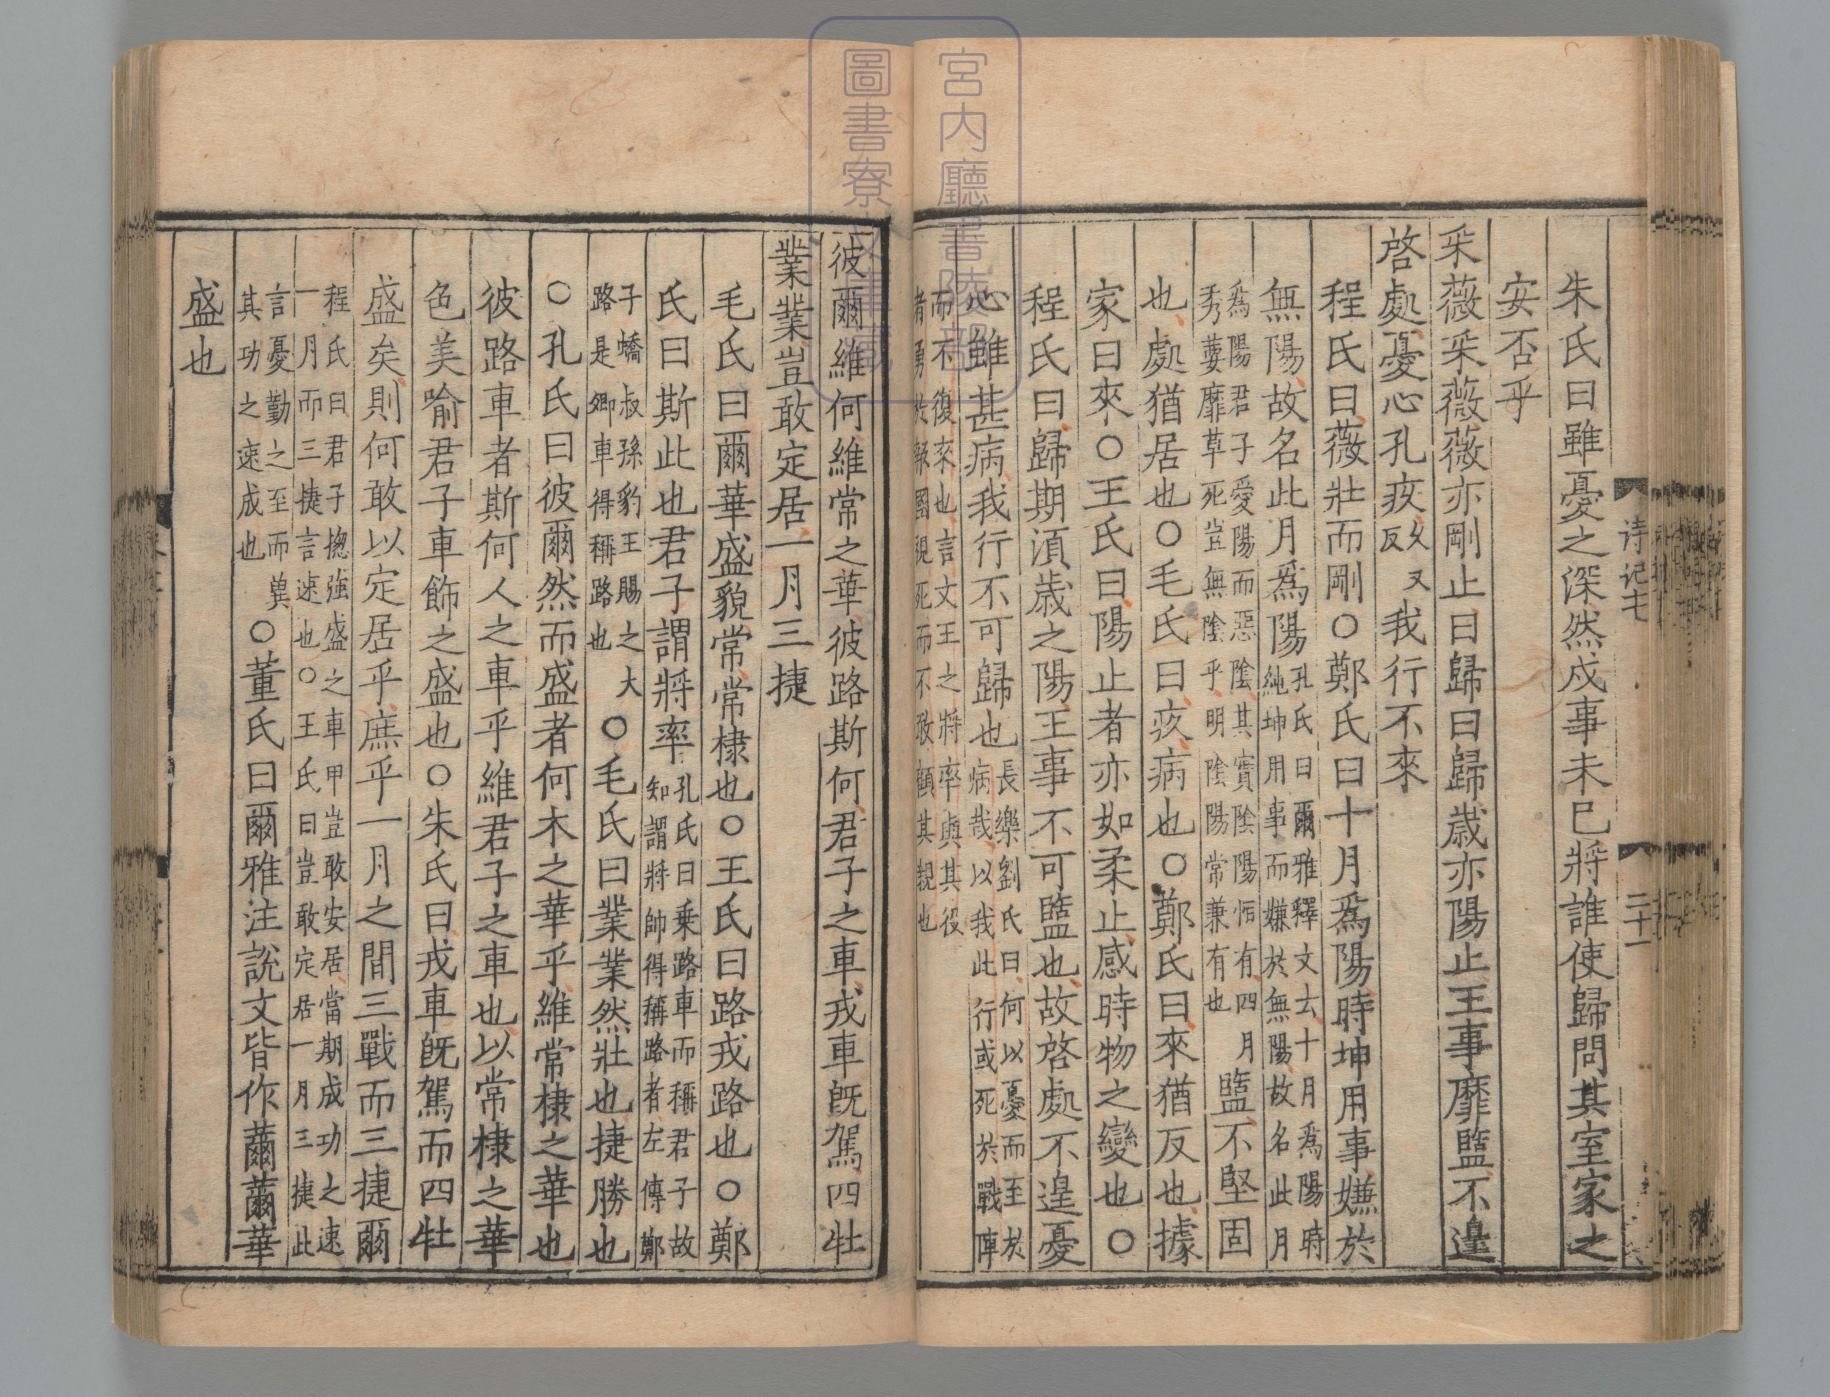 朱氏曰雖憂之深然戍事未已將誰使歸問其室家之
安否乎
采薇采薇薇亦剛止曰歸曰歸歲亦陽止王事靡盬不遑
啓處憂心孔疚久又反我行不來
程氏曰薇壯而剛○鄭氏曰十月爲陽時坤用事嫌於
無陽故名此月爲陽
孔氏曰爾雅釋文云十月爲陽時
純坤用事而嫌於無陽故名此月
爲陽君子愛陽而惡陰其實陰陽恒有四月
秀葽靡草死豈無陰乎明陰陽常兼有也
盬不堅固
也處猶居也○毛氏曰疚病也○鄭氏曰來猶反也據
家曰來○王氏曰陽止者亦如柔止感時物之變也○
程氏曰歸期須歲之陽王事不可盬也故啓處不遑憂
心雖甚病我行不可歸也
長樂劉氏曰何以憂而至於
病哉以我此行或死於戰陣
而不復來也言文王之將率與其役
者勇於報國視死而不敢顧其親也
詩記十七
二十一
彼爾維何維常之華彼路斯何君子之車戎車既駕四牡
業業豈敢定居一月三捷
毛氏曰爾華盛貌常常棣也○王氏曰路戎路也○鄭
氏曰斯此也君子謂將率
孔氏曰乗路車而稱君子故
知謂將帥得稱路者左傳鄭
子蟜叔孫豹王賜之大
路是卿車得稱路也
○毛氏曰業業然壯也捷勝也
○孔氏曰彼爾然而盛者何木之華乎維常棣之華也
彼路車者斯何人之車乎維君子之車也以常棣之華
色美喻君子車飾之盛也○朱氏曰戎車既駕而四牡
盛矣則何敢以定居乎庶乎一月之間三戰而三捷爾
程氏曰君子揔強盛之車甲豈敢安居當期成功之速
一月而三捷言速也○王氏曰豈敢定居一月三捷此
言憂勤之至而冀
其功之速成也
○董氏曰爾雅注説文皆作薾薾華
盛也
宮内廳書陵部
圖書寮文庫蔵